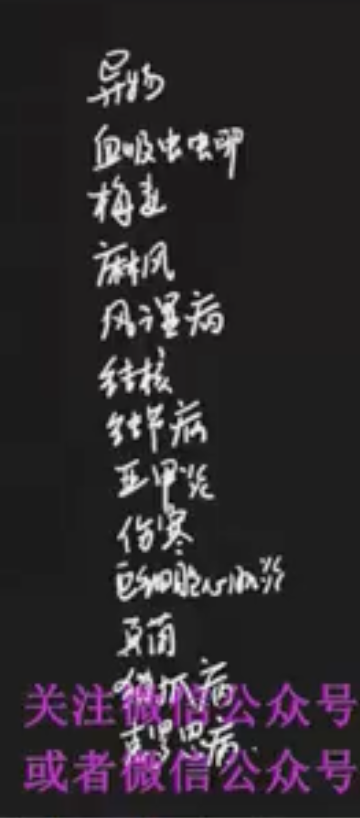 异物
血吸虫虫卵
梅毒
麻风
风湿病
结核
结节病
亚甲炎
伤寒
巨细胞心肌炎
真菌
猫抓病
关注微信公众号
克罗恩病
或者微信公众号